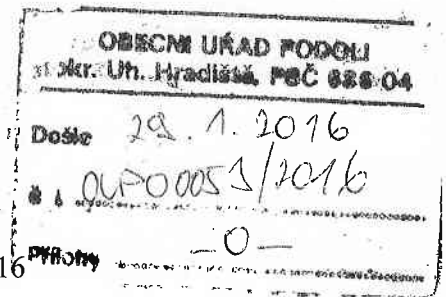 OBECNÍ ÚŘAD PODOLÍ
okr. Uh. Hradiště, PSČ 686 04
Došlo 29. 1. 2016
OUPO0053/2016
Přílohy —0—
16